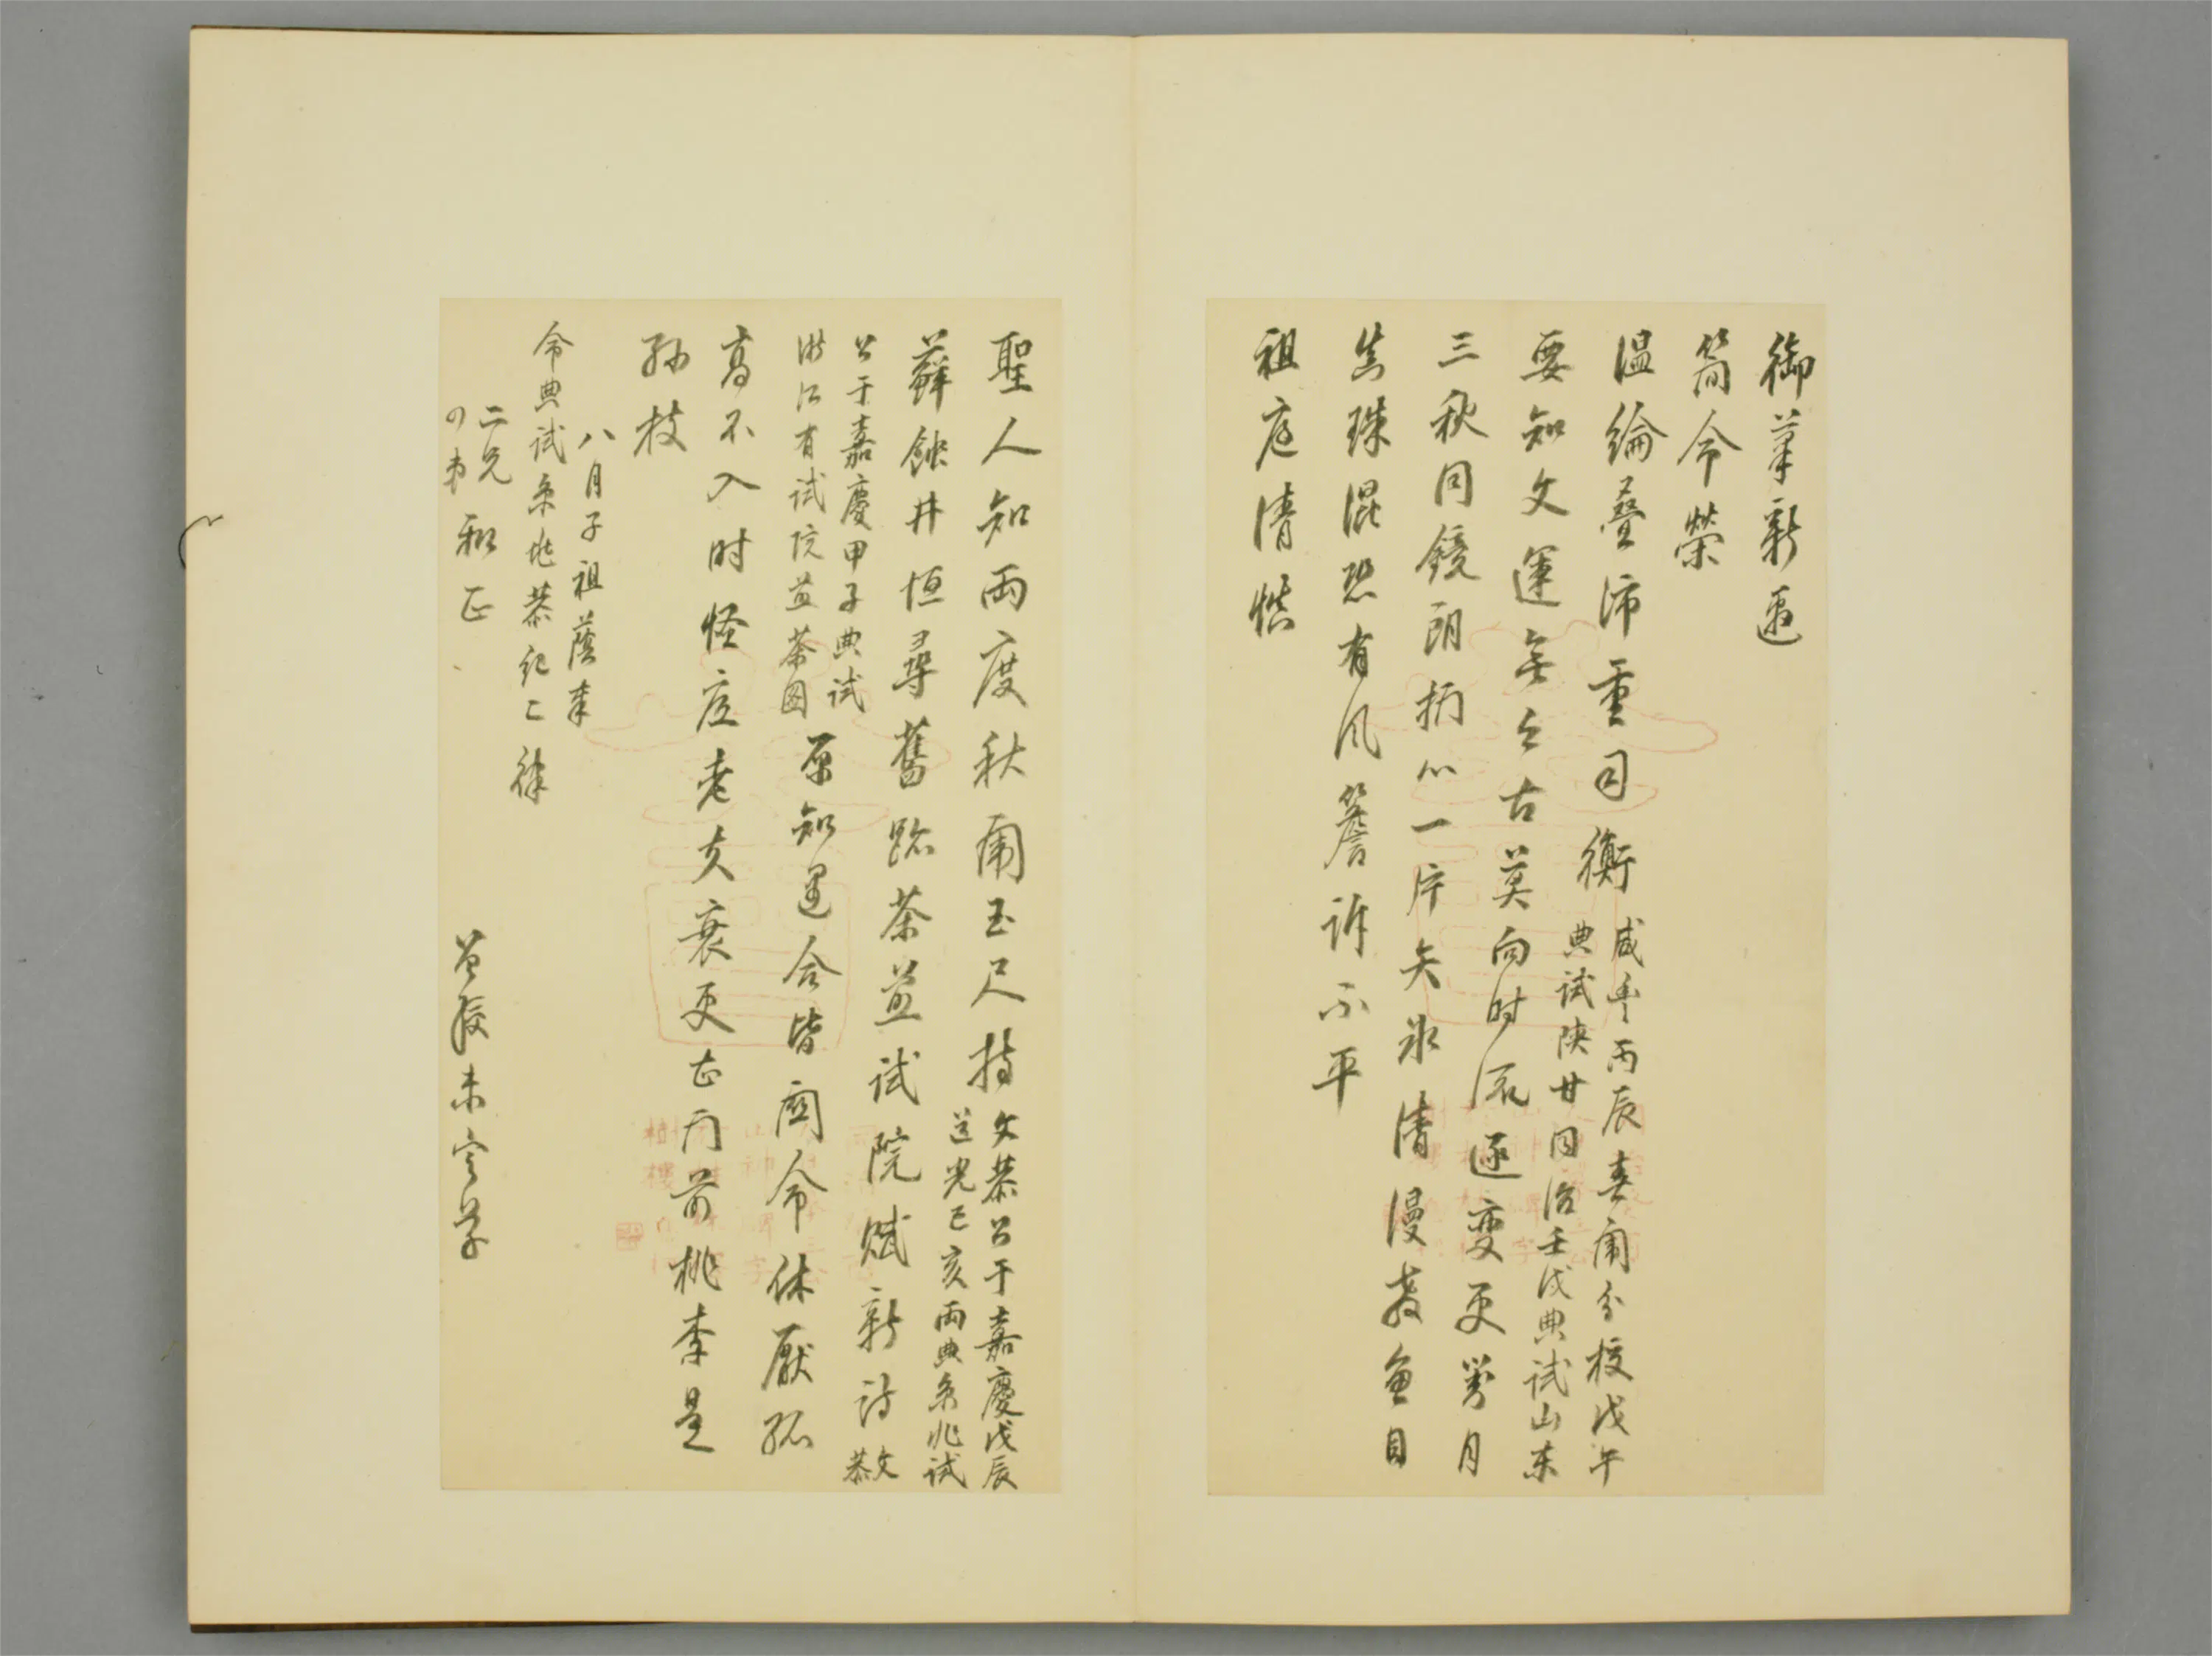 御筆新通
簡命榮
溫綸疊沛重司衡咸豐丙辰春闈分校戊午
典試陝甘同治壬戌典試山東
要知文運無今古莫向時流逐變更對月
三秋同鏡朗捫心一片矢冰清漫教魚目
真珠混恐有風簷訴不平
祖庭清慎
聖人知兩度秋闈玉尺持文恭公于嘉慶戊辰
道光己亥兩典京兆試
蘚蝕井恒尋舊跡茶煎試院賦新詩文恭
公于嘉慶甲子典試
浙江有試院煎茶圖
原知遇合皆關命休厭孤
高不入时怪底老夫衰更甚門前桃李是
孙枝
八月子祖蔭奉
命典試京兆恭紀二律
二兄
四弟 和正
曾綬未定草